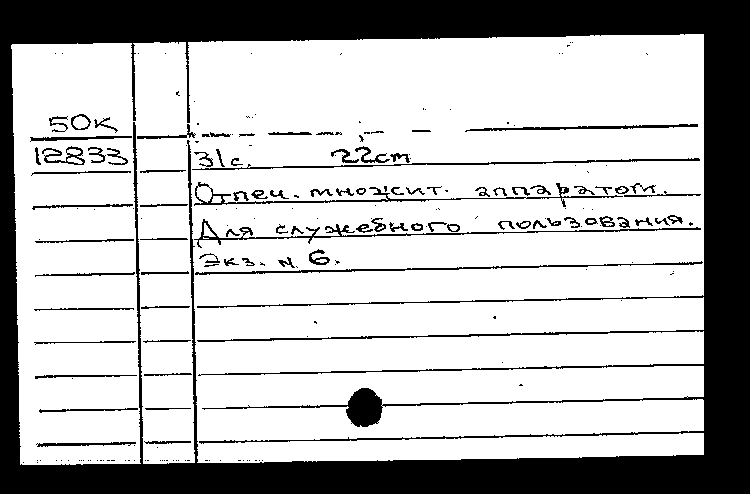 50К
12833 31с. 22см
Отпеч. множит. аппаратом.
Для служебного пользования.
Экз. N 6.